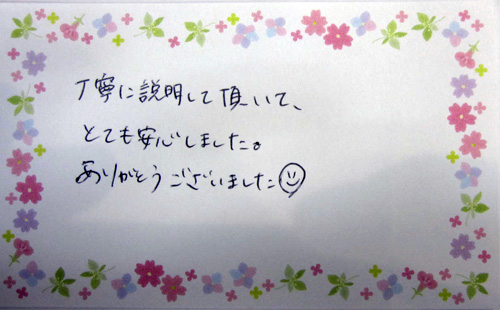 丁寧に説明して頂いて、
とても安心しました。
ありがとうございました